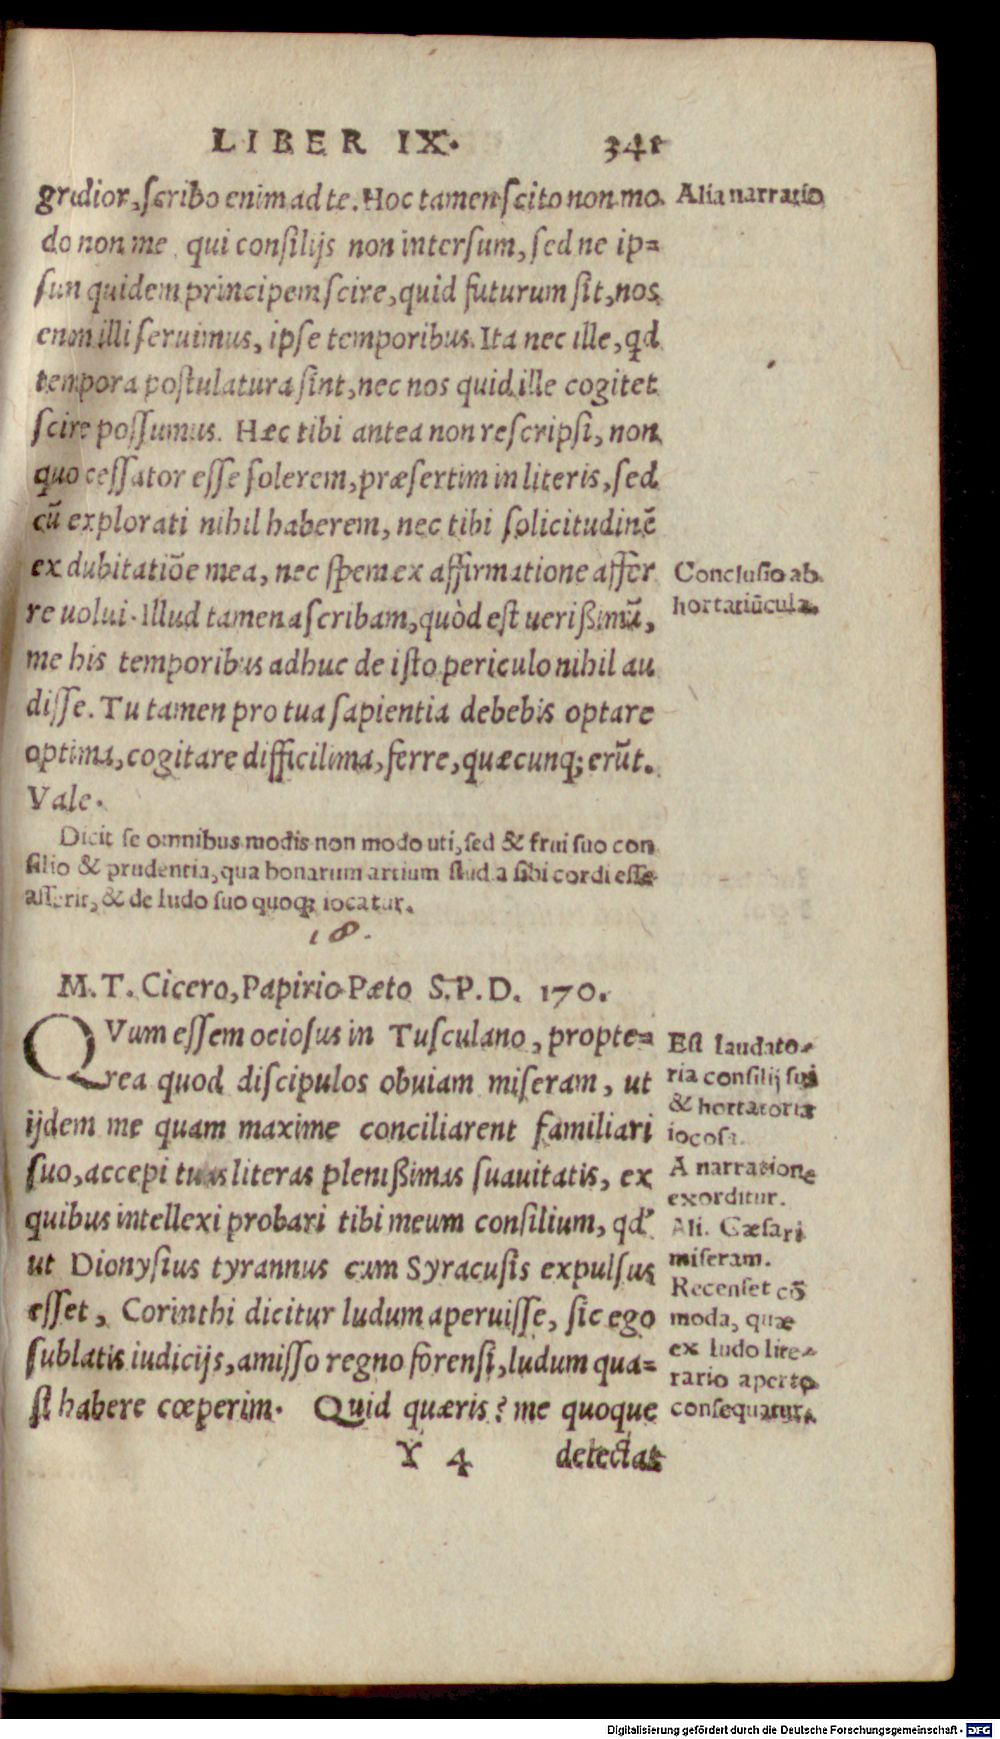 LIBER IX. 341
gredior, scribo enim ad te. Hoc tamen scito non mo
do non me qui consilijs non intersum, sed ne ip=
sum quidem principem scire, quid futurum sit, nos
enim illi seruimus, ipse temporibus. Ita nec ille, qd
tempora postulatura sint, nec nos quid ille cogitet
scire possumus. Hæc tibi antea non rescripsi, non
quo cessator esse solerem, præsertim in literis, sed
cū explorati nihil haberem, nec tibi solicitudinē
ex dubitatiōe mea, nec spem ex affirmatione affer
re uolui. Illud tamen ascribam, quòd est uerißimū,
me his temporibus adhuc de isto periculo nihil au
disse. Tu tamen pro tua sapientia debebis optare
optima, cogitare difficilima, ferre, quæcunq; erūt.
Vale.
Alia narratio
Conclusio ab
hortatiūcula.
Dicit se omnibus modis non modo uti, sed & frui suo con
silio & prudentia, qua bonarum artium stud a sibi cordi esse
asserit, & de ludo suo quoq; iocatur.
18.
M. T. Cicero, Papirio Pæto S. P. D. 170.
QVum essem ociosus in Tusculano, propte=
rea quod discipulos obuiam miseram, ut
ijdem me quam maxime conciliarent familiari
suo, accepi tuas literas plenißimas suauitatis, ex
quibus intellexi probari tibi meum consilium, qd'
ut Dionysius tyrannus cum Syracusis expulsus
esset, Corinthi dicitur ludum aperuisse, sic ego
sublatis iudicijs, amisso regno forensi, ludum qua=
si habere cœperim. Quid quæris? me quoque
Est laudato=
ria consilij sui
& hortatoria
iocosa.
A narratione
exorditur.
Ali. Cæsari
miseram.
Recenset cō
moda, quæ
ex ludo lite=
rario aperto
consequatur.
Y 4 delectat
Digitalisierung gefördert durch die Deutsche Forschungsgemeinschaft - DFG